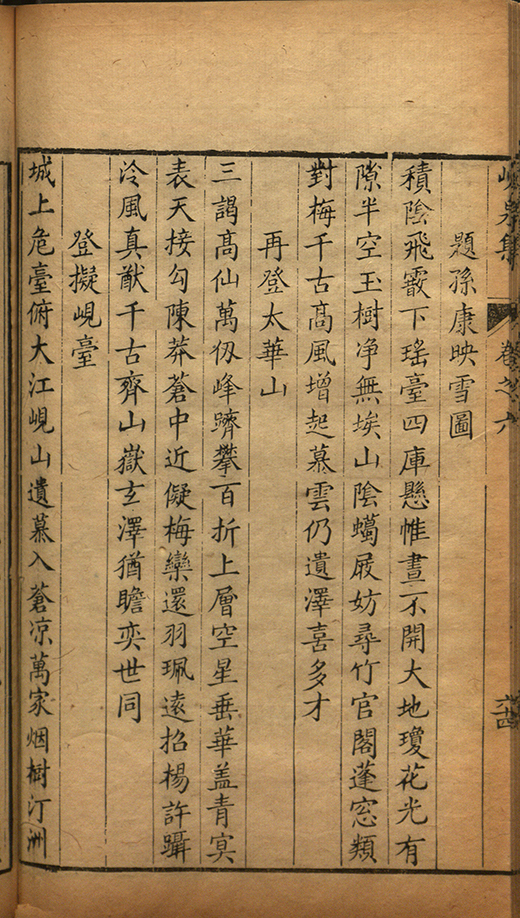 題孫康映雪圖
積陰飛霰下瑤臺四庫懸帷晝不開大地瓊花光有
隙半空玉樹净無埃山陰蠟屐妨尋竹官閣蓬窓類
對梅千古高風增起慕雲仍遺澤喜多才
再登太華山
三謁高仙萬仭峰躋攀百折上層空星垂華盖青冥
表天接勾陳莽蒼中近儗梅欒還羽珮遠招楊許躡
泠風真猷千古齊山嶽玄澤猶瞻奕世同
登擬峴臺
城上危臺俯大江峴山遺慕入蒼凉萬家烟樹汀洲